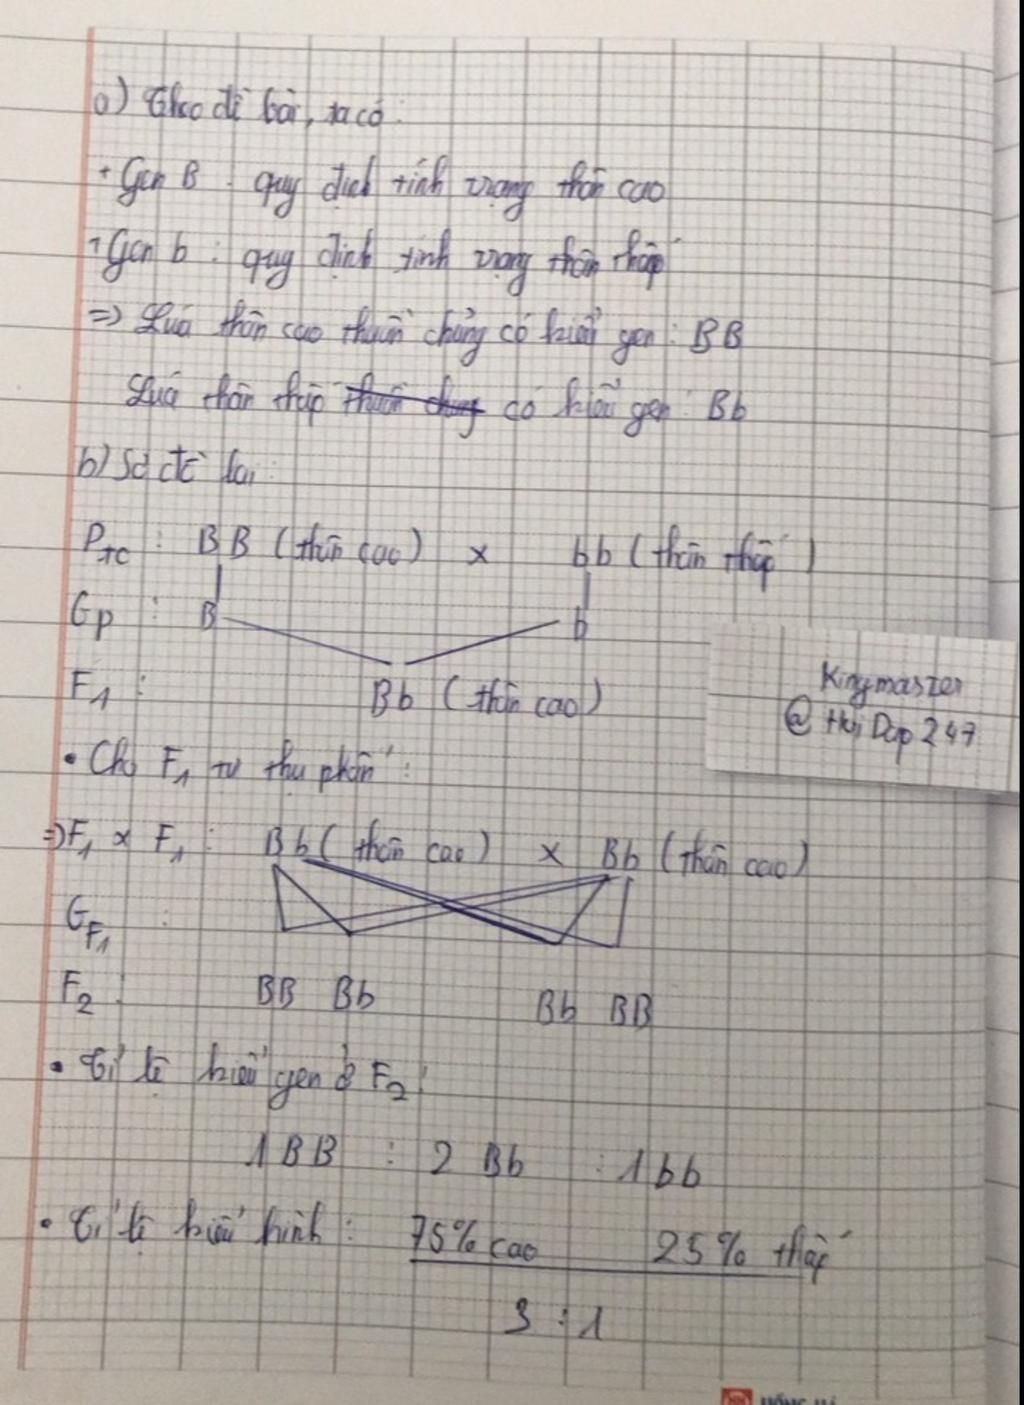 a) Theo đề bài, ta có:
+ Gen B : quy định tính trạng thân cao
+ Gen b : quy định tính trạng thân thấp
=> Lúa thân cao thuần chủng có kiểu gen : BB
Lúa thân thấp thuần chủng có kiểu gen : Bb
b) Sơ đồ lai:
Ptc : BB (thân cao) x bb (thân thấp)
Gp : B b
F1 : Bb (thân cao)
Kingmaster
@ Hoi Dap 247
• Cho F1 tự thụ phấn :
=> F1 x F1 : Bb (thân cao) x Bb (thân cao)
GF1 :
F2 : BB Bb Bb BB
• Tỉ lệ kiểu gen ở F2 :
1 BB : 2 Bb : 1 bb
• Tỉ lệ kiểu hình : 75% cao 25% thấp
3 : 1